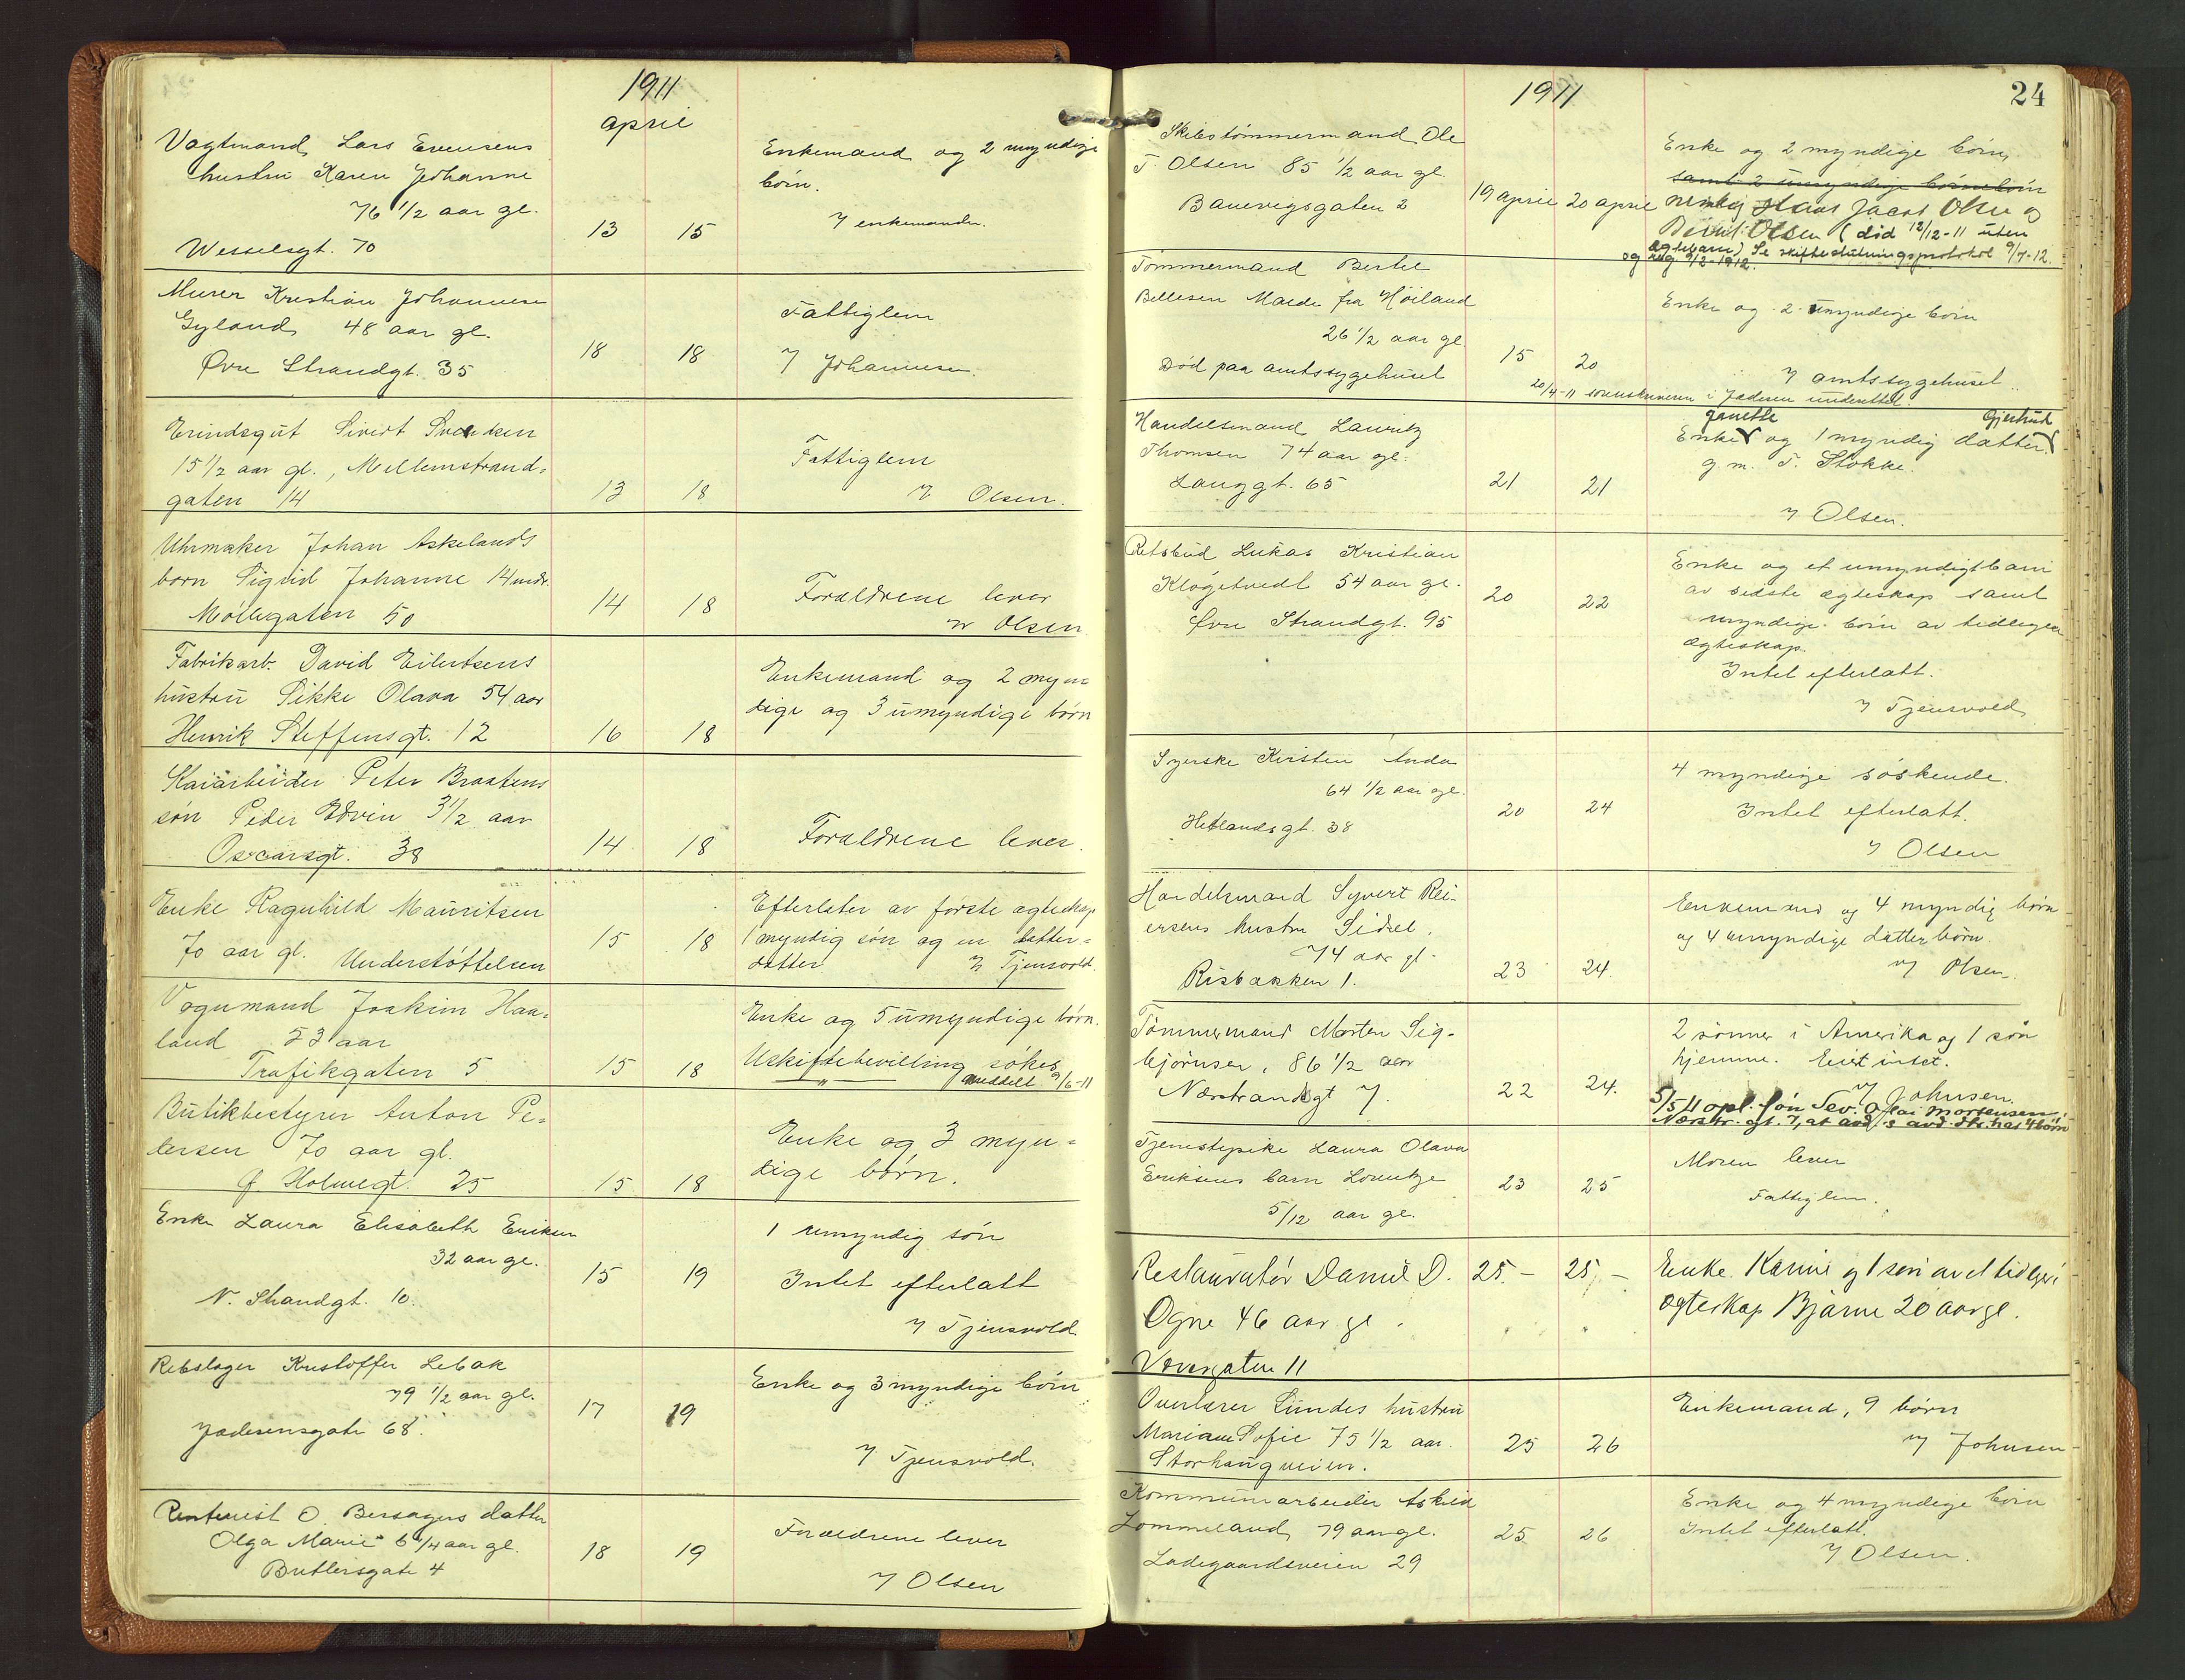 1911
april
Vagtmand Lars Evensens
hustru Karen Johanne
76 1/2 aar gl.
Wesselsgt. 70
13
15
Enkemand og 2 myndige
børn.
v/ enkemanden.
Murer Kristian Johannesen
Gyland 48 aar gl.
Øvre Strandgt. 35
18
18
Fattiglem
v/ Johannesen.
Erindsgut Sivert Svendsen
15 1/2 aar gl., Mellemstrand-
gaten 14
13
18
Fattiglem
v/ Olsen.
Uhrmaker Johan Askelands
barn Sigrid Johanne 14 mdr.
Møllegaten 50
14
18
Forældrene lever
v/ Olsen
Fabrikarb. David Eilertsens
hustru Sikke Olava 54 aar
Henrik Steffensgt. 12
16
18
Enkemand og 2 myn-
dige og 3 umyndige børn
Kaiarbeider Peter Braatens
søn Peder Edvin 3 1/2 aar
Oscarsgt. 38
14
18
Forældrene lever.
Enke Ragnhild Mauritsen
70 aar gl. Understøttelsen
15
18
Efterlater av første ægteskap
1 myndig søn og en datter-
datter. v/ Tjensvold.
Vognmand Joakim Haa-
land 53 aar
Trafikgaten 5
15
18
Enke og 5 umyndige børn.
Uskiftebevilling søkes
meddelt 9/6-11
Butikbestyrer Anton Pe-
tersen 70 aar gl.
Holmegt. 25
15
18
Enke og 3 myn-
dige børn.
Enke Laura Elisabeth Eriksen
32 aar gl.
N. Strandgt. 10.
15
19
1 umyndig søn
Intet efterlatt
v/ Tjensvold.
Rebslager Kristoffer Lebak
79 1/2 aar gl.
Jæderensgate 68.
17
19
Enke og 3 myndige børn
v/ Tjensvold.
Rentenist O. Bersagers datter
Olga Marie 6 1/4 aar gl.
Butlersgate 4
18
19
Forældrene lever
v/ Olsen
1911
24
Skibstømmermand Ole
T. Olsen 85 1/2 aar gl.
Banevigsgaten 2
19 april
20 april
Enke og 2 myndige børn,
samt 2 umyndige børnebørn
nemlig Hans Jacob Olsen og
Olsen (død 12/12-11 uten
ægtebarn) Se skifteslutningsprotokol 9/7-12.
og 2/2-1912.
Tømmermand Bertel
Bellesen Malde fra Høiland
26 1/2 aar gl.
Død paa amtssygehuset
15
20
Enke og 2 umyndige børn
v/ amtssygehuset.
20/4-11 sorenskriveren i Jæderen underrettet.
Handelsmand Lauritz
Thomsen 74 aar gl.
Langgt. 65
21
21
Janette
Gjertrud
Enke og 1 myndig datter
g.m. T. Stokke.
v/ Olsen.
Retsbud Lukas Kristian
Kløgetvedt 54 aar gl.
Øvre Strandgt. 95
20
22
Enke og et umyndigt barn
av sidste ægteskap samt
myndige børn av tidligere
ægteskap.
Intet efterlatt.
v/ Tjensvold
Syerske Kirsten Anda
64 1/2 aar gl.
Hetlandsgt. 38
20
24
4 myndige søskende.
Intet efterlatt.
v/ Olsen
Handelsmand Syvert Rei-
ersens hustru Sidsel.
74 aar gl.
Risbakken 1.
23
24.
Enkemand og 4 myndig børn
og 4 umyndige datterbørn.
v/ Olsen.
Tømmermand Morten Sig-
bjørnsen, 86 1/2 aar
Nærstrandsgt 7.
22
24.
2 sønner i Amerika og 1 søn
hjemme. Eiet intet.
v/ Johnsen.
5/5 11 opl. søn Sev. Olai Mortensen,
Nærstr. gt. 7, at avd.s avd. dtr. har 4 børn
Tjenestepike Laura Olava
Eriksens barn Lorentze
5/12 aar gl.
23
25
Moren lever
Fattiglem.
Restauratør Daniel D.
Ogne 46 aar gl.
Vævergaten 11
25. -
25. -
Enke Karine og 1 søn av et tidligere
ægteskap Bjarne 20 aar gl.
Overlærer Lundes hustru
Mariane Sofie 75 1/2 aar.
Storhaugveien.
25
26
Enkemand, 9 børn
v/ Johnsen
Kommunearbeider Askild
Lommeland, 79 aar gl.
Ladegaardsveien 29
25
26
Enke og 4 myndige børn
Intet efterlatt.
v/ Olsen.